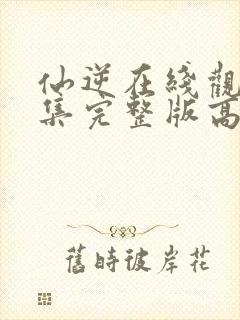 仙逆在綫觀
集完整版高
舊時彼岸花